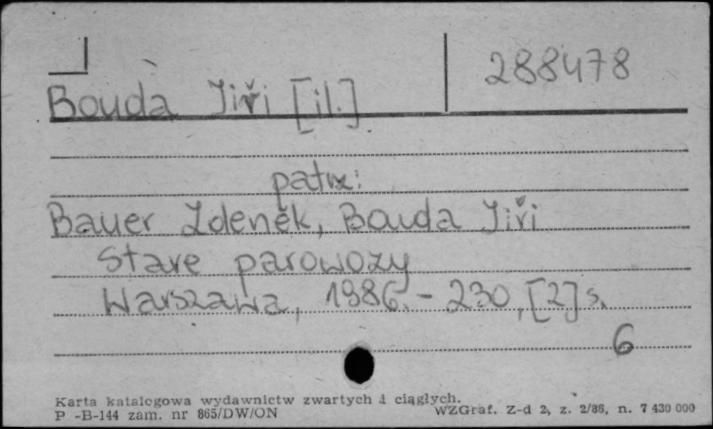 288478
Bouda Jiří [il.]
patrz:
Bauer Zdeněk, Bouda Jiří
Stare parowozy
Warszawa, 1986. - 230, [2] s.
6
Karta katalogowa wydawnictw zwartych i ciągłych.
P -B-144 zam. nr 865/DW/ON WZGraf. Z-d 2, z. 2/86, n. 7 430 000